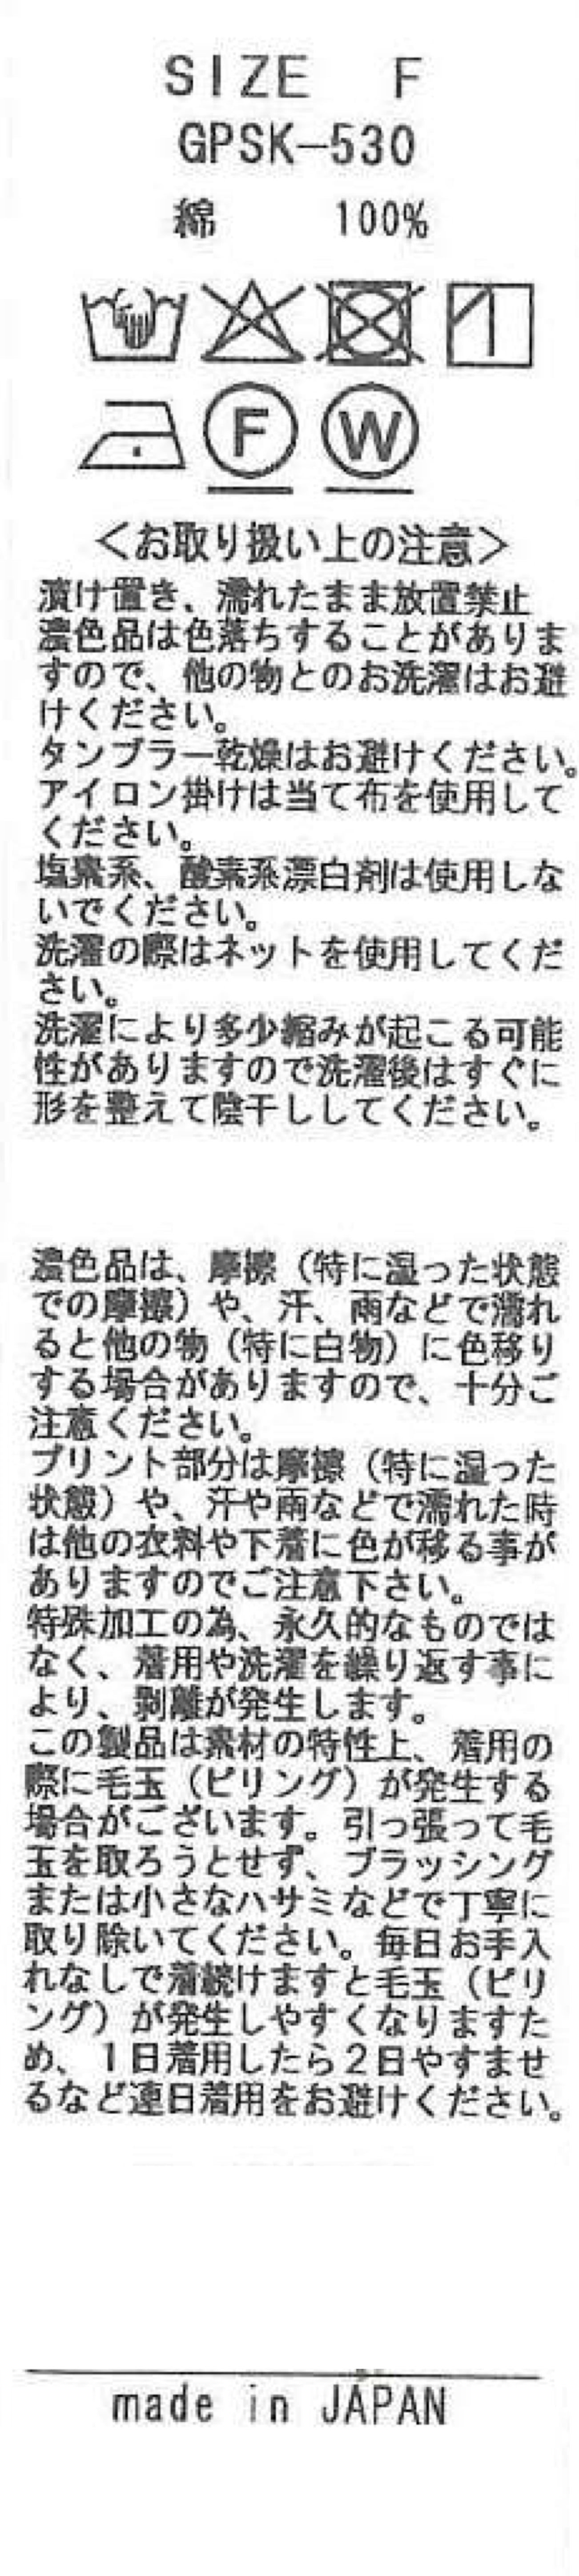 SIZE F
GPSK-530
綿 100%
F W
<お取り扱い上の注意>
漬け置き、濡れたまま放置禁止
濃色品は色落ちすることがありま
すので、他の物とのお洗濯はお避
けください。
タンブラー乾燥はお避けください。
アイロン掛けは当て布を使用して
ください。
塩素系、酸素系漂白剤は使用しな
いでください。
洗濯の際はネットを使用してくだ
さい。
洗濯により多少縮みが起こる可能
性がありますので洗濯後はすぐに
形を整えて陰干ししてください。
濃色品は、摩擦（特に湿った状態
での摩擦）や、汗、雨などで濡れ
ると他の物（特に白物）に色移り
する場合がありますので、十分ご
注意ください。
プリント部分は摩擦（特に湿った
状態）や、汗や雨などで濡れた時
は他の衣料や下着に色が移る事が
ありますのでご注意下さい。
特殊加工の為、永久的なものでは
なく、着用や洗濯を繰り返す事に
より、剥離が発生します。
この製品は素材の特性上、着用の
際に毛玉（ピリング）が発生する
場合がございます。引っ張って毛
玉を取ろうとせず、ブラッシング
または小さなハサミなどで丁寧に
取り除いてください。毎日お手入
れなしで着続けますと毛玉（ピリ
ング）が発生しやすくなりますた
め、1日着用したら2日やすませ
るなど連日着用をお避けください。
made in JAPAN